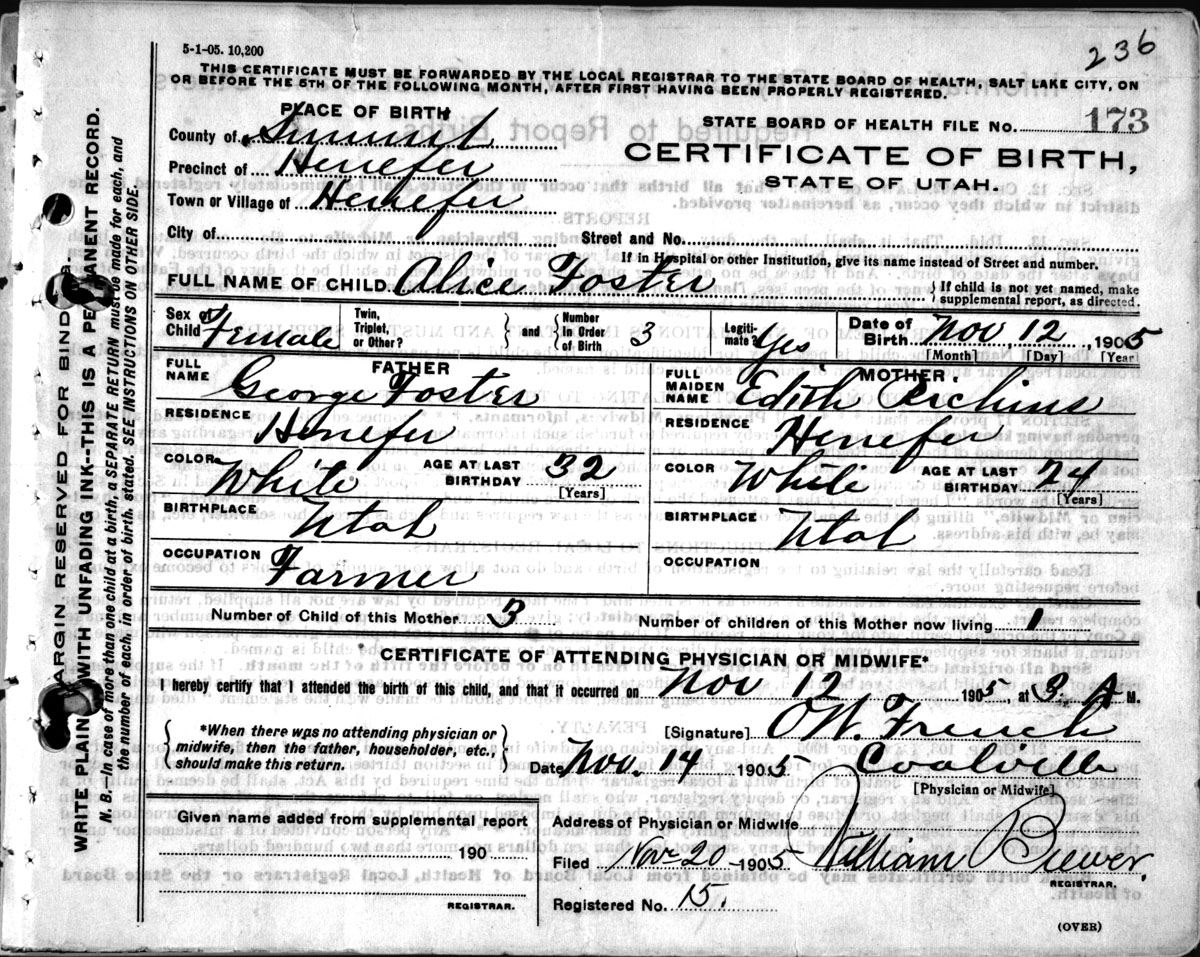 236
5-1-05. 10,200
THIS CERTIFICATE MUST BE FORWARDED BY THE LOCAL REGISTRAR TO THE STATE BOARD OF HEALTH, SALT LAKE CITY, ON
OR BEFORE THE 5TH OF THE FOLLOWING MONTH, AFTER FIRST HAVING BEEN PROPERLY REGISTERED.
PLACE OF BIRTH
STATE BOARD OF HEALTH FILE NO. 173
County of Summit
CERTIFICATE OF BIRTH,
Precinct of Henefer
STATE OF UTAH.
Town or Village of Henefer
City of Street and No.
If in Hospital or other Institution, give its name instead of Street and number.
FULL NAME OF CHILD Alice Foster { If child is not yet named, make
supplemental report, as directed.
Sex of Child Female Twin, Triplet, or Other? } and { Number in Order of Birth 3 Legiti-mate? Yes Date of Birth Nov 12, 1905
[Month] [Day] [Year]
FATHER MOTHER
FULL NAME George Foster FULL MAIDEN NAME Edith
RESIDENCE Henefer RESIDENCE Henefer
COLOR White AGE AT LAST BIRTHDAY 32 [Years] COLOR White AGE AT LAST BIRTHDAY 24 [Years]
BIRTHPLACE Utah BIRTHPLACE Utah
OCCUPATION Farmer OCCUPATION
Number of Child of this Mother 3 Number of children of this Mother now living 1
CERTIFICATE OF ATTENDING PHYSICIAN OR MIDWIFE*
I hereby certify that I attended the birth of this child, and that it occurred on Nov 12 1905, at 3. A M.
{ *When there was no attending physician or
midwife, then the father, householder, etc.,
should make this return. }
[Signature] O W. French
Date Nov. 14 1905 Coalville
[Physician or Midwife]
Given name added from supplemental report
190
REGISTRAR.
Address of Physician or Midwife
Filed Nov 20 1905 William Brewer.
REGISTRAR.
Registered No. 15.
(OVER)
MARGIN RESERVED FOR BINDING.
WRITE PLAINLY WITH UNFADING INK--THIS IS A PERMANENT RECORD.
N. B.--In case of more than one child at a birth, a SEPARATE RETURN must be made for each, and
the number of each, in order of birth, stated. SEE INSTRUCTIONS ON OTHER SIDE.